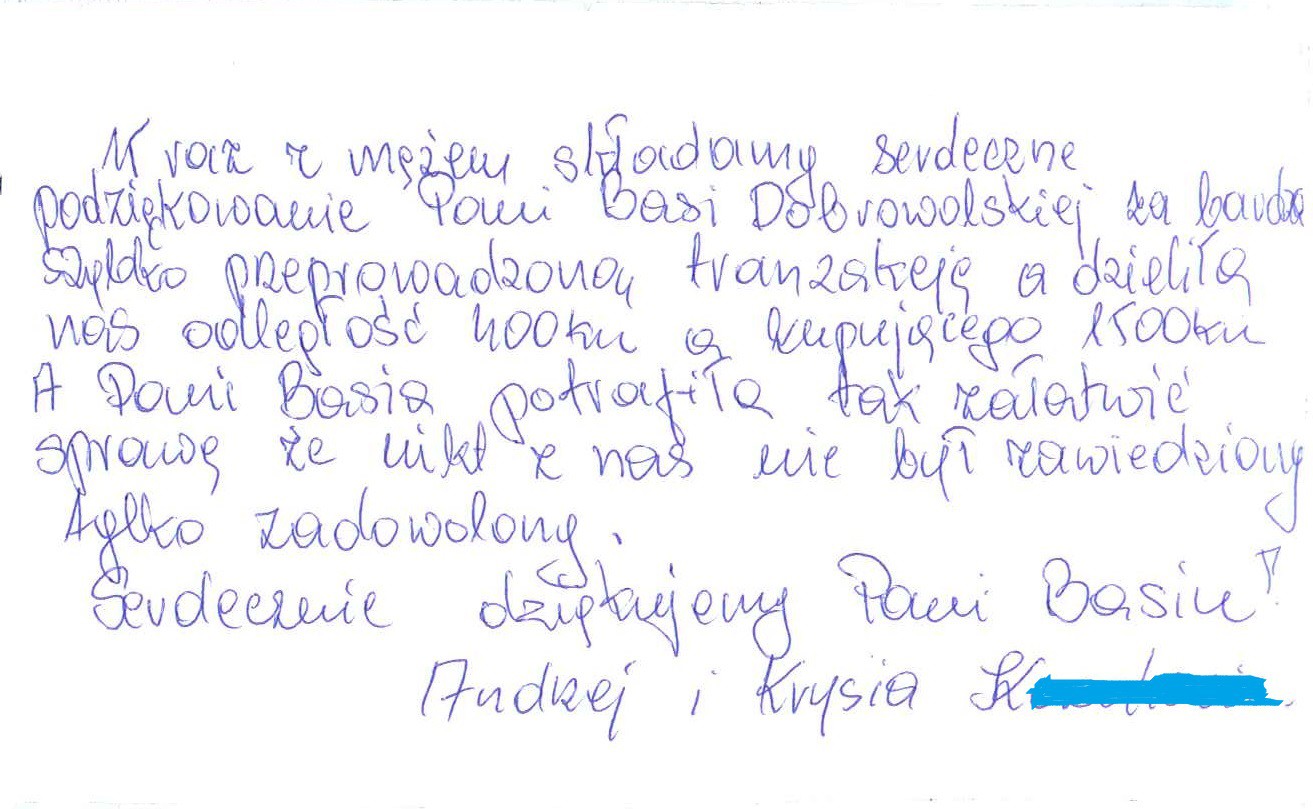 W raz z mężem składamy serdeczne
podziękowanie Pani Basi Dobrowolskiej za bardzo
szybko przeprowadzoną tranzakcję a dzieliła
nas odległość 400km a kupującego 1500km
A Pani Basia potrafiła tak załatwić
sprawę że nikt z nas nie był zawiedziony
tylko zadowolony.
Serdecznie dziękujemy Pani Basiu!
Andrzej i Krysia K